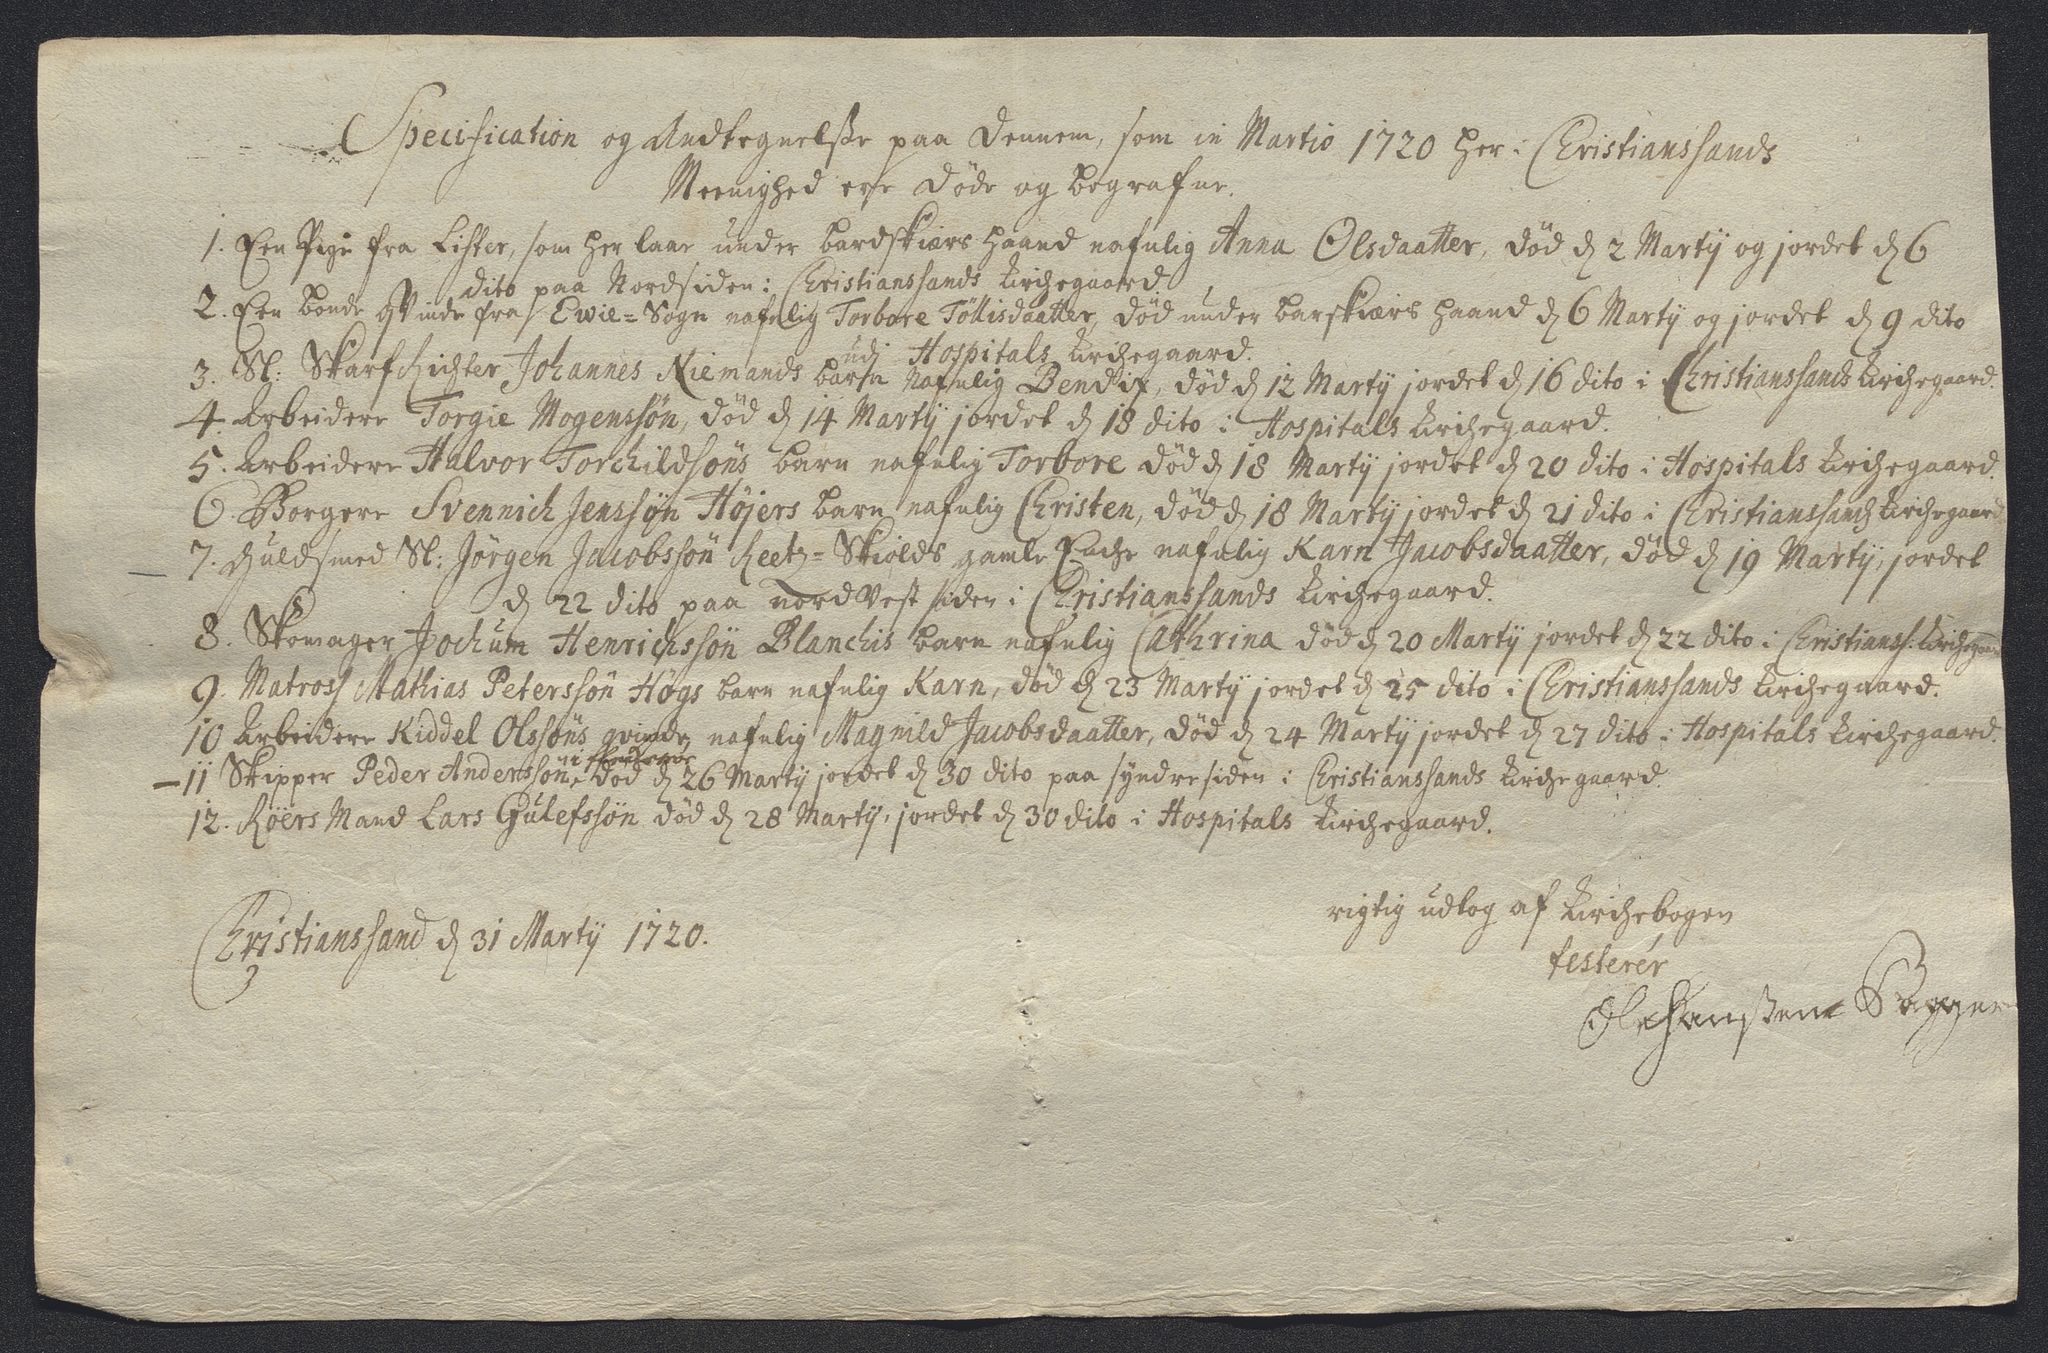 Specification og Andtegnelsße paa dennem, som in Martio 1720 her i Christianssands
Meenighed ere døde og begrafne.
1. Een Pige fra Lister, som her laae under bardskiærs haand nafnlig Anna Olsdaatter, død d. 2 Martij og jordet d. 6
dito paa Nordsiden i Christianssands Kirchegaard
2. Een bonde qvinde fra Ewie-Sogn nafnlig Torbore Töllisdaatter, død under barskiærs haand d. 6 Martij og jordet d. 9 dito
udi Hospitals Kirchegaard.
3. Sl: Skarfrichter Johannes Niemands barn Nafnlig Bendix, død d. 12 Martij jordet d. 16 dito i Christianssands Kirchegaard.
4. Arbeidere Torgie Mogenssøn, død d. 14 Martij jordet d. 18 dito i Hospitals Kirchegaard.
5. Arbeidere Halvor Torchildsøns barn nafnlig Torbore død d. 18 Martij jordet d. 20 dito i Hospitals Kirchegaard.
6. Borgere Svennich Jenssøn Højers barn nafnlig Christen, død d. 18 Martij jordet d. 21 dito i Christianssands Kirchegaard
7. Guldsmed Sl: Jörgen Jacobssøn Reetz-Skiolds gamle Enche nafnlig Karn Jacobsdaatter, død d. 19 Martij, jordet
d. 22 dito paa nordvest siden i Christianssands Kirchegaard.
8. Skomager Jochum Henrichssøn Blanchis barn nafnlig Cathrina død d. 20 Martij jordet d. 22 dito i Christianss. Kirchegaard
9. Matross Mathias Peterssøn Høgs barn nafnlig Karn, død d. 23 Martij jordet d. 25 dito i Christianssands Kirchegaard.
10 Arbeidere Kiddel Olssøns qvinde nafnlig Magnild Jacobsdaatter, død d. 24 Martij jordet d. 27 dito i Hospitals Kirchegaard.
11 Skipper Peder Anderssøn død d. 26 Martij jordet d. 30 dito paa syndresiden i Christianssands Kirchegaard.
12. Røers Mand Lars Gulefssøn død d. 28 Martij, jordet d. 30 dito i Hospitals Kirchegaard.
rigtig udtog af Kirchebogen
Christianssand d. 31 Martij 1720.
testerer
Ole Hanßen Bagger